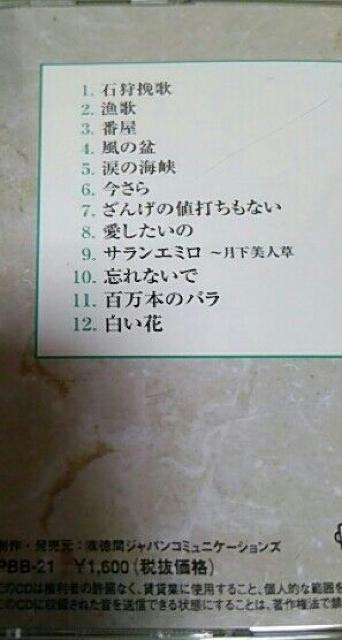 1. 石狩挽歌
2. 漁歌
3. 番屋
4. 風の盆
5. 涙の海峡
6. 今さら
7. ざんげの値打ちもない
8. 愛したいの
9. サランエミロ ~月下美人草
10. 忘れないで
11. 百万本のバラ
12. 白い花
制作・発売元:㈱徳間ジャパンコミュニケーションズ
PBB-21 ¥1,600(税抜価格)
このCDは権利者の許諾なく、賃貸業に使用すること、個人的な範囲を
このCDに収録された音を送信できる状態にすることは、著作権法で禁